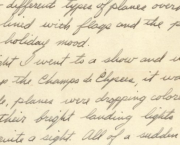 different types of planes over
lined with flags and the p
holiday mood.
ght I went to a show and w
p the Champs de Elysees, it wa
s, planes were dropping colore
their bright landing lights
quite a sight. All of a sudden